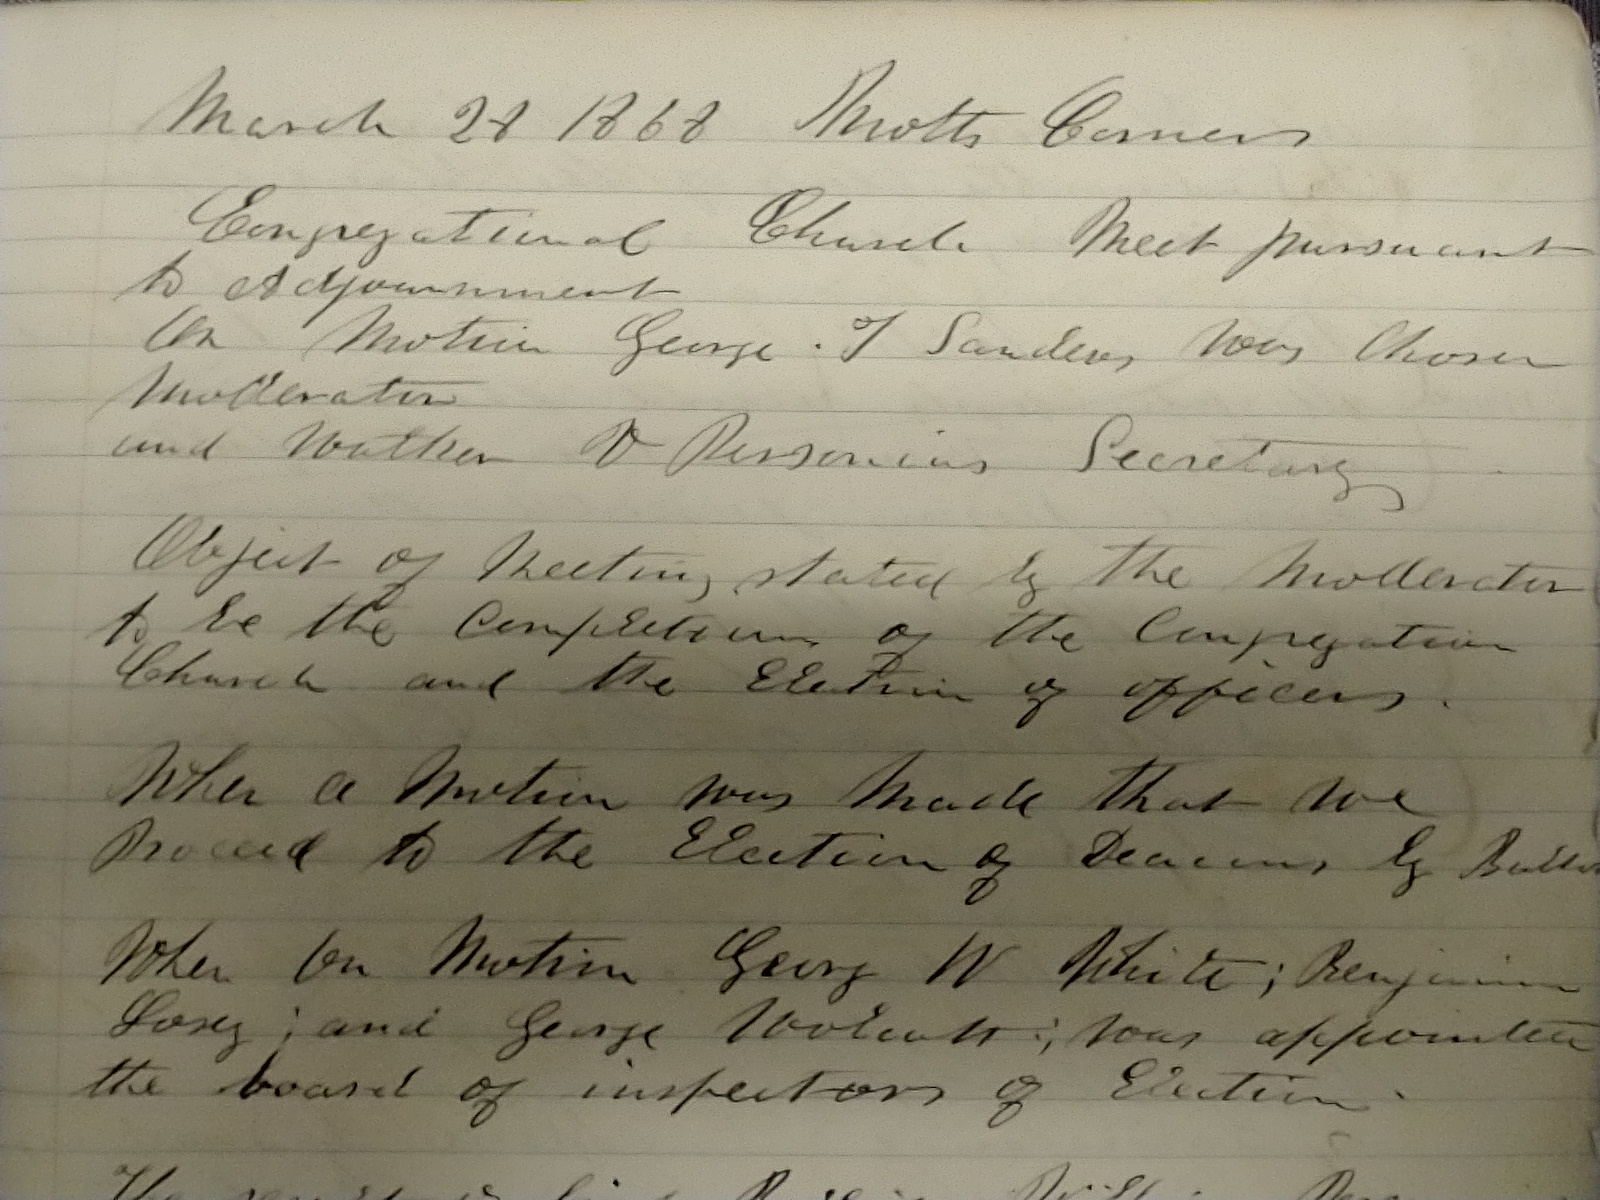 March 28 1868 Motts Corners
Congregational Church Meet pursuant
to Adjournment
On Motion George . T Sanders was Chosen
Moderator
and Walker V Personius Secretary
Object of Meeting stated by the Moderator
to be the Completion of the Congregation
Church and the Election of officers .
When a Motion was Made that we
Proceed to the Election of Deacons by
When on Motion Georg W White ; Benjamin
Losey ; and George Wolcott ; was appointed
the board of inspectors of Election .
The